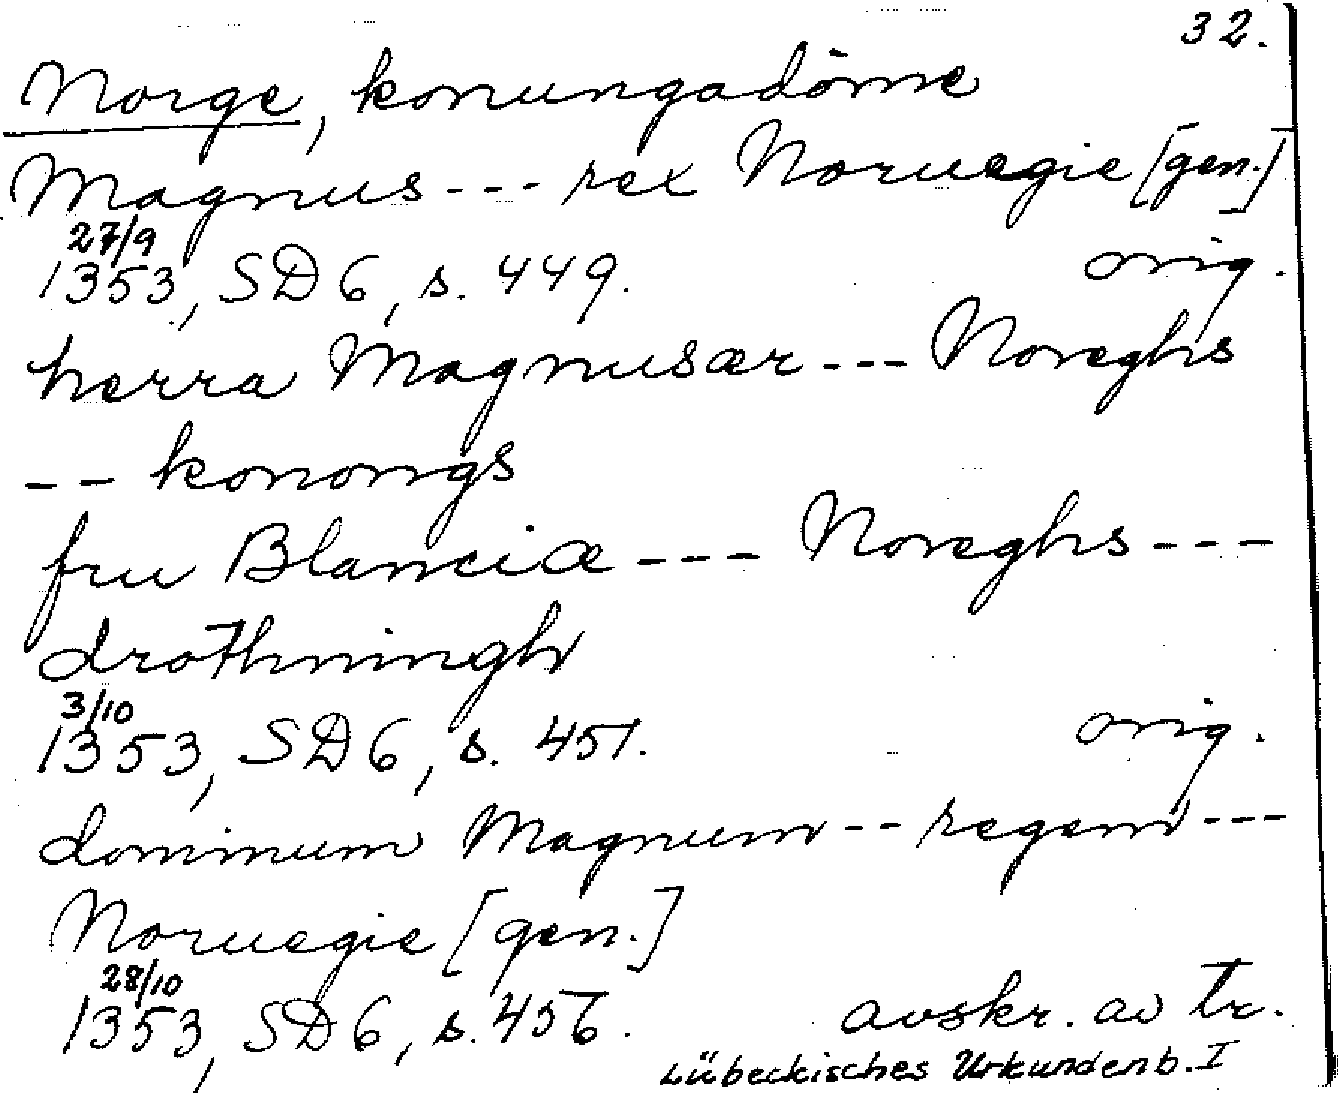 32.
Norge, konungadöme
Magnus --- rex Noruegie [gen.]
27/9
1353, SD 6, s. 449. orig.
herra Magnusær --- Noreghs
-- konongs
fru Blanciæ --- Noreghs ---
drothningh
3/10
1353, SD 6, s. 451. orig.
dominum Magnum -- regem ---
Noruegie [gen.]
28/10
1353, SD 6, s. 456. avskr. av tr.
Lübeckisches Urkundenb. I